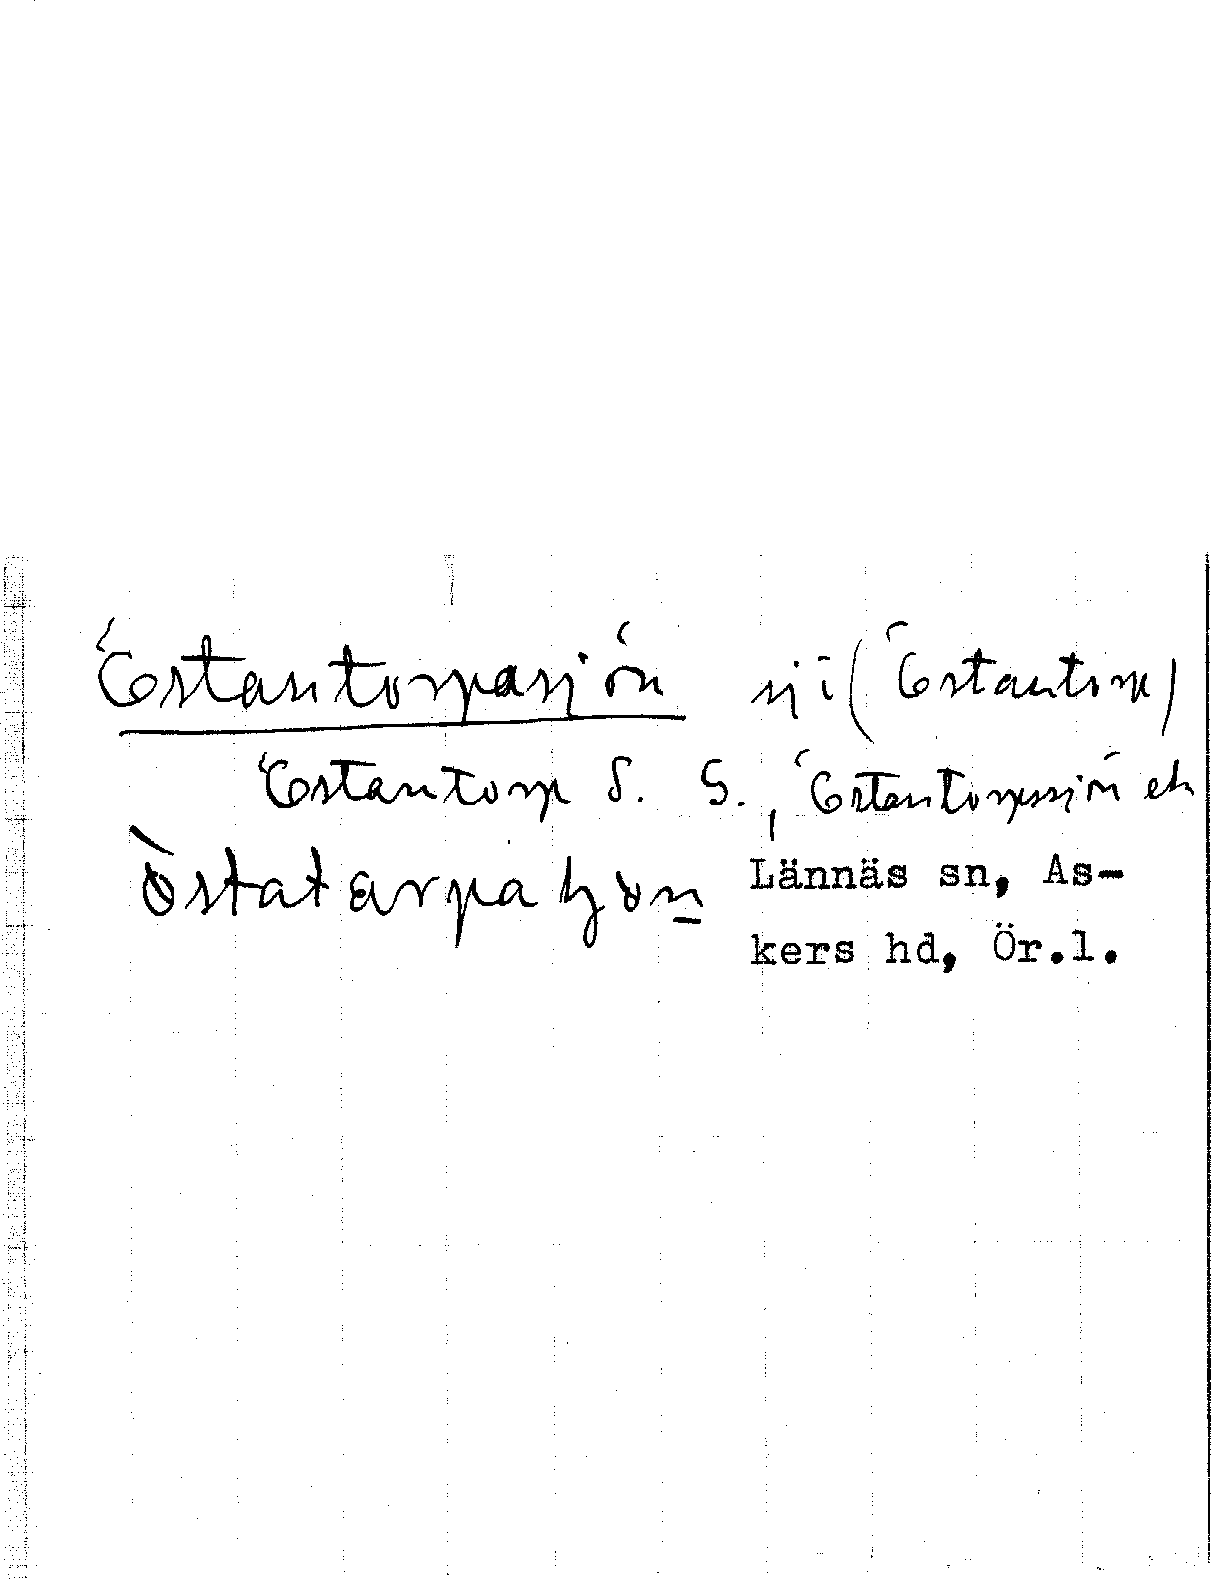 Östantorpasjön sj i (Östantorp)
Östantorp S. G., Östantorpssjön ek
Lännäs sn, As-
kers hd, Ör.l.